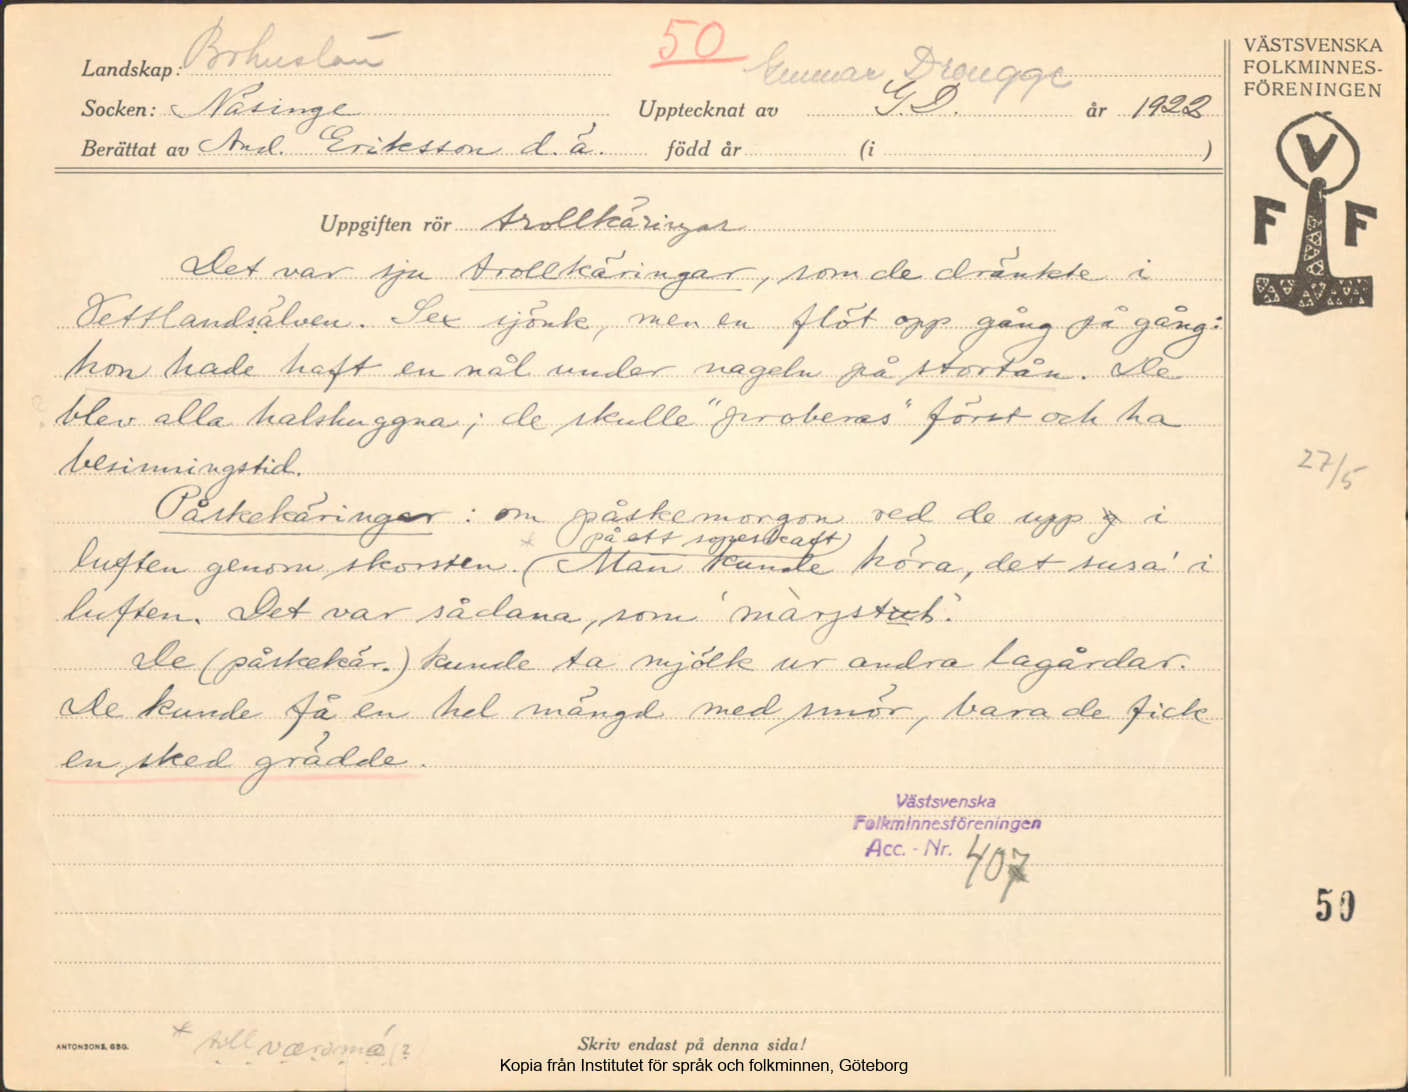 Landskap: Bohuslän
50
Gunnar Drougge
Socken: Näsinge
Upptecknat av G.D. år 1922
Berättat av And. Eriksson d.ä. född år (i )
VÄSTSVENSKA
FOLKMINNES-
FÖRENINGEN
V
F F
Uppgiften rör trollkäringar
Det var sju trollkäringar, som de dränkte i
Vettlandsälven. Sex sjönk, men en flöt opp gång på gång:
hon hade haft en nål under nageln på stortån. De
blev alla halshuggna; de skulle "proberas" först och ha
besinningstid.
27/5
Påskekäringar: om påskemorgon red de upp i
på ett sopeskaft)
luften genom skorsten.* (Man kunde höra, det susa' i
luften. Det var sådana, som 'màrjstub'.
De (påskekär.) kunde ta mjölk ur andra lagårdar.
De kunde få en hel mängd med smör, bara de fick
en sked grädde.
Västsvenska
Folkminnesföreningen
Acc. - Nr. 407
50
ANTONSONS, GBG.
* till
Skriv endast på denna sida!
Kopia från Institutet för språk och folkminnen, Göteborg